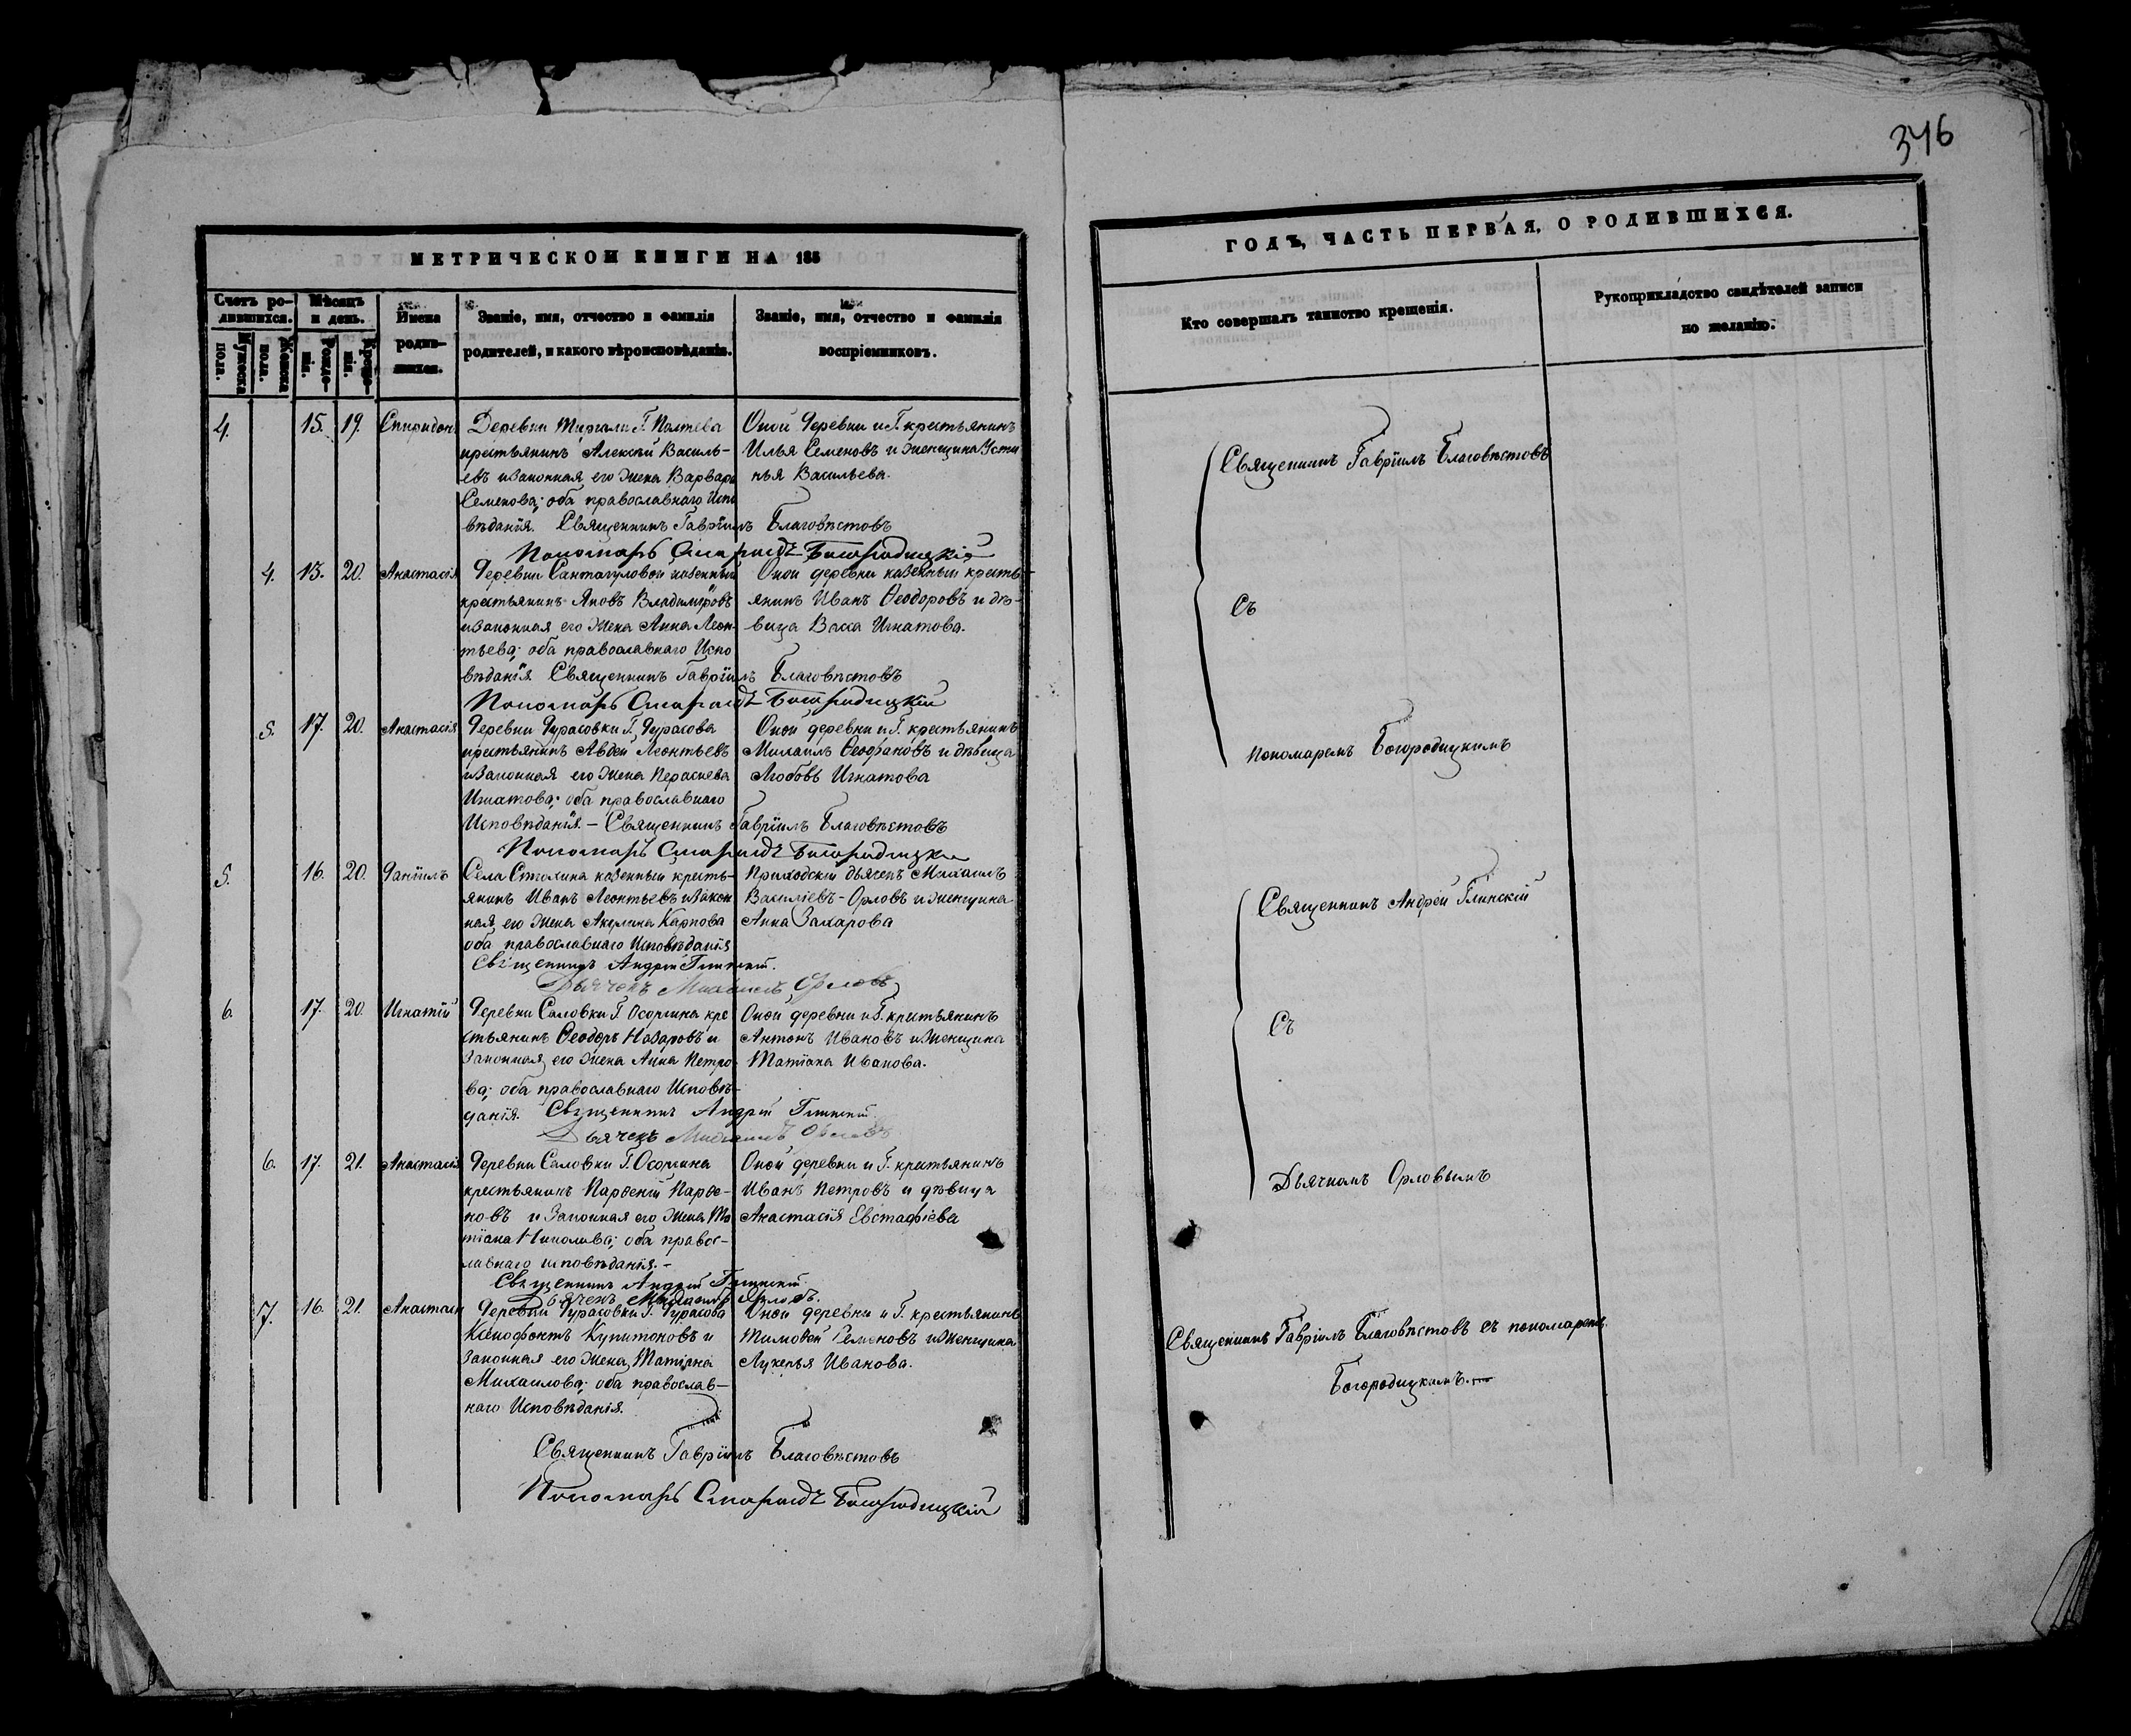 346
МЕТРИЧЕСКОЙ КНИГИ НА 185
Счетъ родившихся.
Мужеска пола.
Женска пола.
Мѣсяцъ и день.
Рожденія.
Крещенія.
Имена родившихся.
Званіе, имя, отчество и фамилія
родителей, и какого вѣроисповѣданія.
Званіе, имя, отчество и фамилія
воспріемниковъ.
4. 15. 19. Спиридонъ
Деревни Г. Полтева
крестьянинъ Алексѣй Василь-
евъ и законная его жена Варвара
Семенова; оба православнаго Испо
вѣданія. Священникъ Гавріилъ Благовѣстовъ
Пономарь Смарагдъ Богородицкій
Оной деревни и Г. крестьянинъ
Илья Семеновъ и женщина Усти
нья Васильева.
4. 15. 20. Анастасія
Деревни казенный
крестьянинъ Яковъ Владиміровъ
и законная его жена Анна Леон-
тьева; оба православнаго Испо
вѣданія. Священникъ Гавріилъ Благовѣстовъ
Пономарь Смарагдъ Богородицкій
Оной деревни казенный кресть-
янинъ Иванъ Ѳеодоровъ и дѣ-
вица Васса Игнатова.
5. 17. 20. Анастасія
Деревни Дурасовки Г. Дурасова
крестьянинъ Авдей Леонтьевъ
и законная его жена Параскева
Игнатова; оба православнаго
Исповѣданія. – Священникъ Гавріилъ Благовѣстовъ
Пономарь Смарагдъ Богородицкій
Оной деревни и Г. крестьянинъ
Михаилъ Ѳеофановъ и дѣвица
Любовь Игнатова
5. 16. 20. Даніилъ
Села казенный кресть-
янинъ Иванъ Леонтьевъ и закон
ная его жена Акулина Карпова
оба православнаго Исповѣданія
Священникъ Андрей Глинскій.
Дьячекъ Михаилъ Орловъ
Приходскій дьячекъ Михаилъ
Василіевъ-Орловъ и женщина
Анна Захарова
6. 17. 20. Игнатій
Деревни Саловки Г. Осоргина кре
стьянинъ Ѳеодоръ Назаровъ и
законная его жена Анна Петро-
ва; оба православнаго Исповѣ-
данія. Священникъ Андрей Глинскій.
Дьячекъ Михаилъ Орловъ
Оной деревни и Г. крестьянинъ
Антонъ Ивановъ и женщина
Матіана Иванова.
6. 17. 21. Анастасія
Деревни Саловки Г. Осоргина
крестьянинъ Парѳеній Парѳе-
новъ и законная его жена Та
тіана; оба право-
славнаго исповѣданія. –
Священникъ Андрей Глинскій.
Дьячекъ Михаилъ Орловъ.
Оной деревни и Г. крестьянинъ
Иванъ Петровъ и дѣвица
Анастасія Евстафіева
7. 16. 21. Анастасія
Деревни Дурасовки Г. Дурасова
Ксенофонтъ Купитоновъ и
законная его жена Татіана
Михаилова; оба православ-
наго Исповѣданія.
Священникъ Гавріилъ Благовѣстовъ
Пономарь Смарагдъ Богородицкій
Оной деревни и Г. крестьянинъ
Тимоѳей Семеновъ и женщина
Лукерья Иванова.
ГОДЪ, ЧАСТЬ ПЕРВАЯ, О РОДИВШИХСЯ.
Кто совершалъ таинство крещенія.
Рукоприкладство свидѣтелей записи
по желанію.
Священникъ Гавріилъ Благовѣстовъ
Съ
пономаремъ Богородицкимъ
Священникъ Андрей Глинскій
Съ
Дьячкомъ Орловымъ
Священникъ Гавріилъ Благовѣстовъ съ пономаремъ
Богородицкимъ.